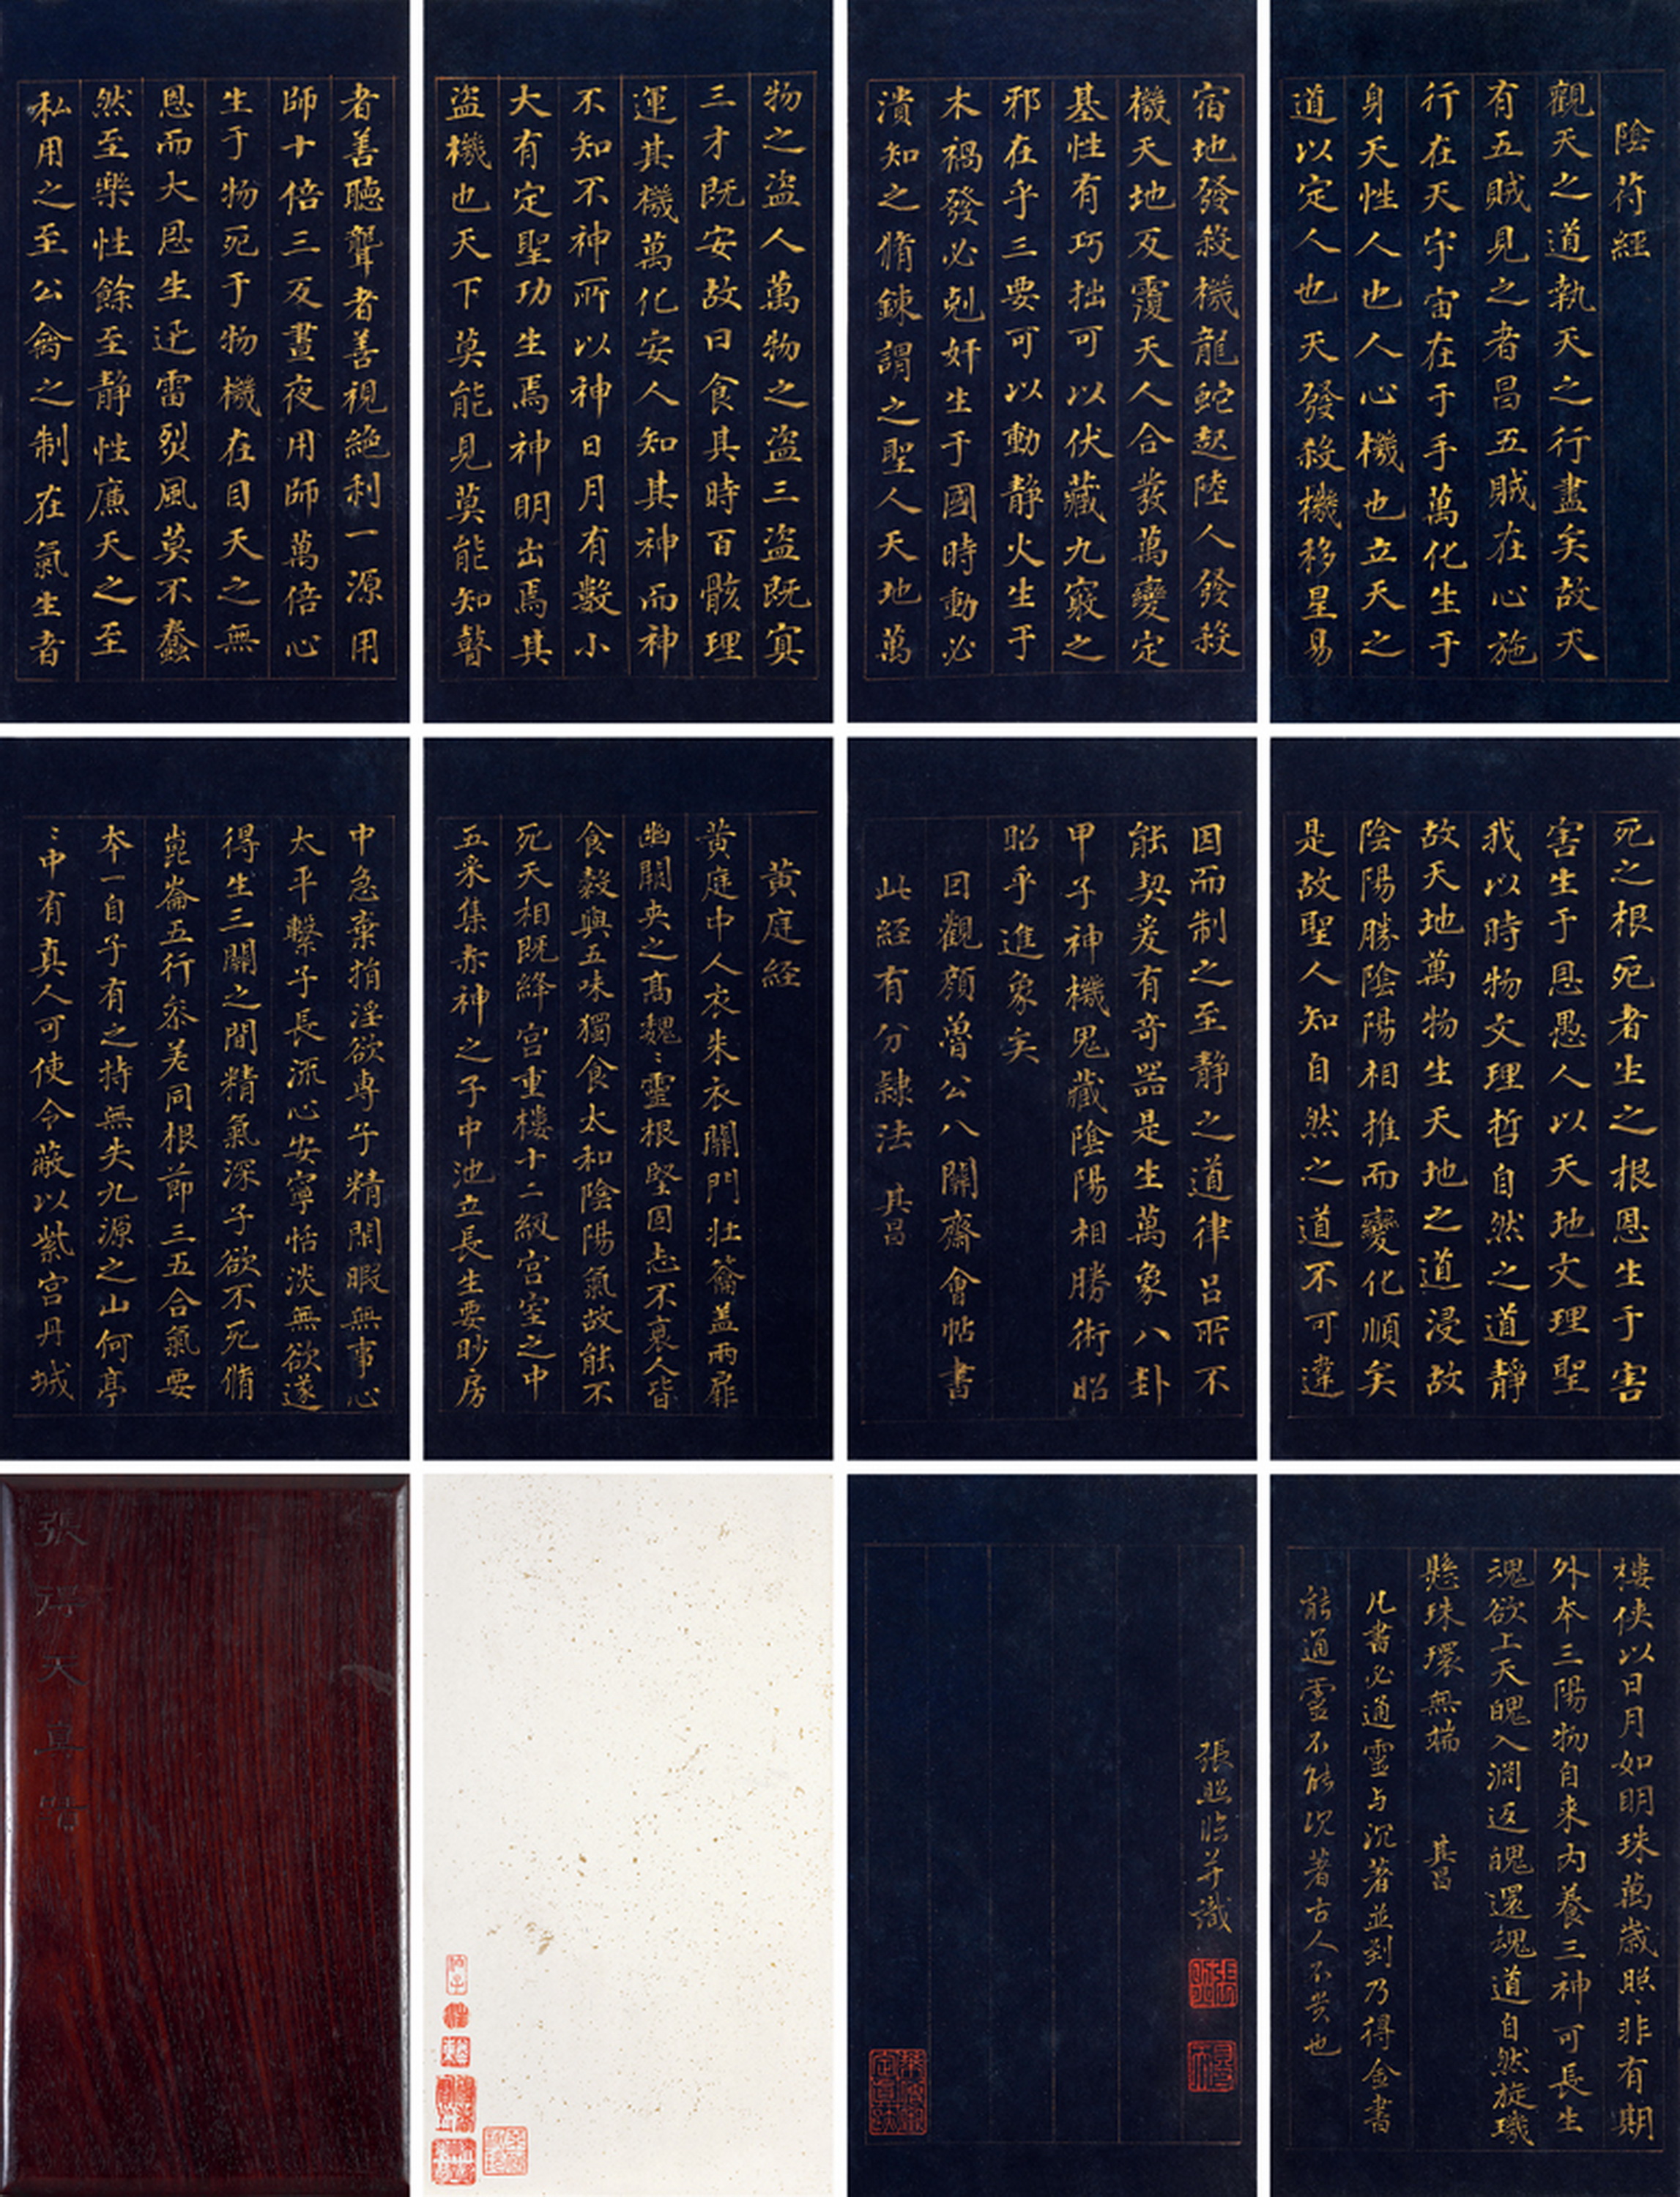 陰符經
觀天之道執天之行盡矣故天
有五賊見之者昌五賊在心施
行在天宇宙在于手萬化生于
身天性人也人心機也立天之
道以定人也天發殺機移星易
宿地發殺機龍蛇起陸人發殺
機天地反覆天人合發萬變定
基性有巧拙可以伏藏九竅之
邪在乎三要可以動靜火生于
木禍發必剋奸生于國時動必
潰知之脩鍊謂之聖人天地萬
物之盜人萬物之盜三盜既宜
三才既安故曰食其時百骸理
運其機萬化安人知其神而神
不知不神所以神日月有數小
大有定聖功生焉神明出焉其
盜機也天下莫能見莫能知瞽
者善聽聾者善視絕利一源用
師十倍三反晝夜用師萬倍心
生于物死于物機在目天之無
恩而大恩生迅雷烈風莫不蠢
然至樂性餘至靜性廉天之至
私用之至公禽之制在氣生者
死之根死者生之根恩生于害
害生于恩愚人以天地文理聖
我以時物文理哲自然之道靜
故天地萬物生天地之道浸故
陰陽勝陰陽相推而變化順矣
是故聖人知自然之道不可違
因而制之至靜之道律呂所不
能契爰有奇器是生萬象八卦
甲子神機鬼藏陰陽相勝術昭
昭乎進象矣
日觀顏魯公八關齋會帖書
此經有分隸法 其昌
黄庭経
黄庭中人衣朱衣關門壮籥蓋兩扉
幽關夾之髙魏〻靈根堅固志不衰人皆
食穀與五味獨食太和陰陽氣故能不
死天相既絳宫重樓十二級宫室之中
五采集赤神之子中池立長生要眇房
中急棄捐淫欲専子精閑暇無事心
太平繫子長流心安寧恬淡無欲遂
得生三關之間精氣深子欲不死脩
崑崙五行叅差同根節三五合氣要
本一自子有之持無失九源之山何亭
〻中有真人可使令蔽以紫宫丹城
樓俠以日月如明珠萬歳照〻非有期
外本三陽物自来内養三神可長生
魂欲上天魄入淵返魄還魂道自然旋璣
懸珠環無端 其昌
凡書必通靈与沉著並到乃得金書
能通靈不能沉著古人不貴也
張照臨并識
張得天真書